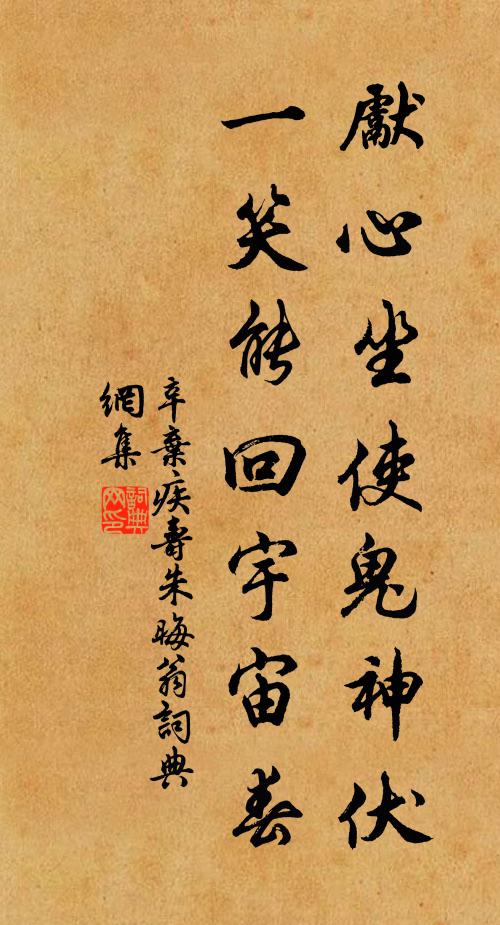 獻心坐使鬼神伏
一笑能回宇宙春
辛棄疾壽朱晦翁詞典
網集
詞典
网印